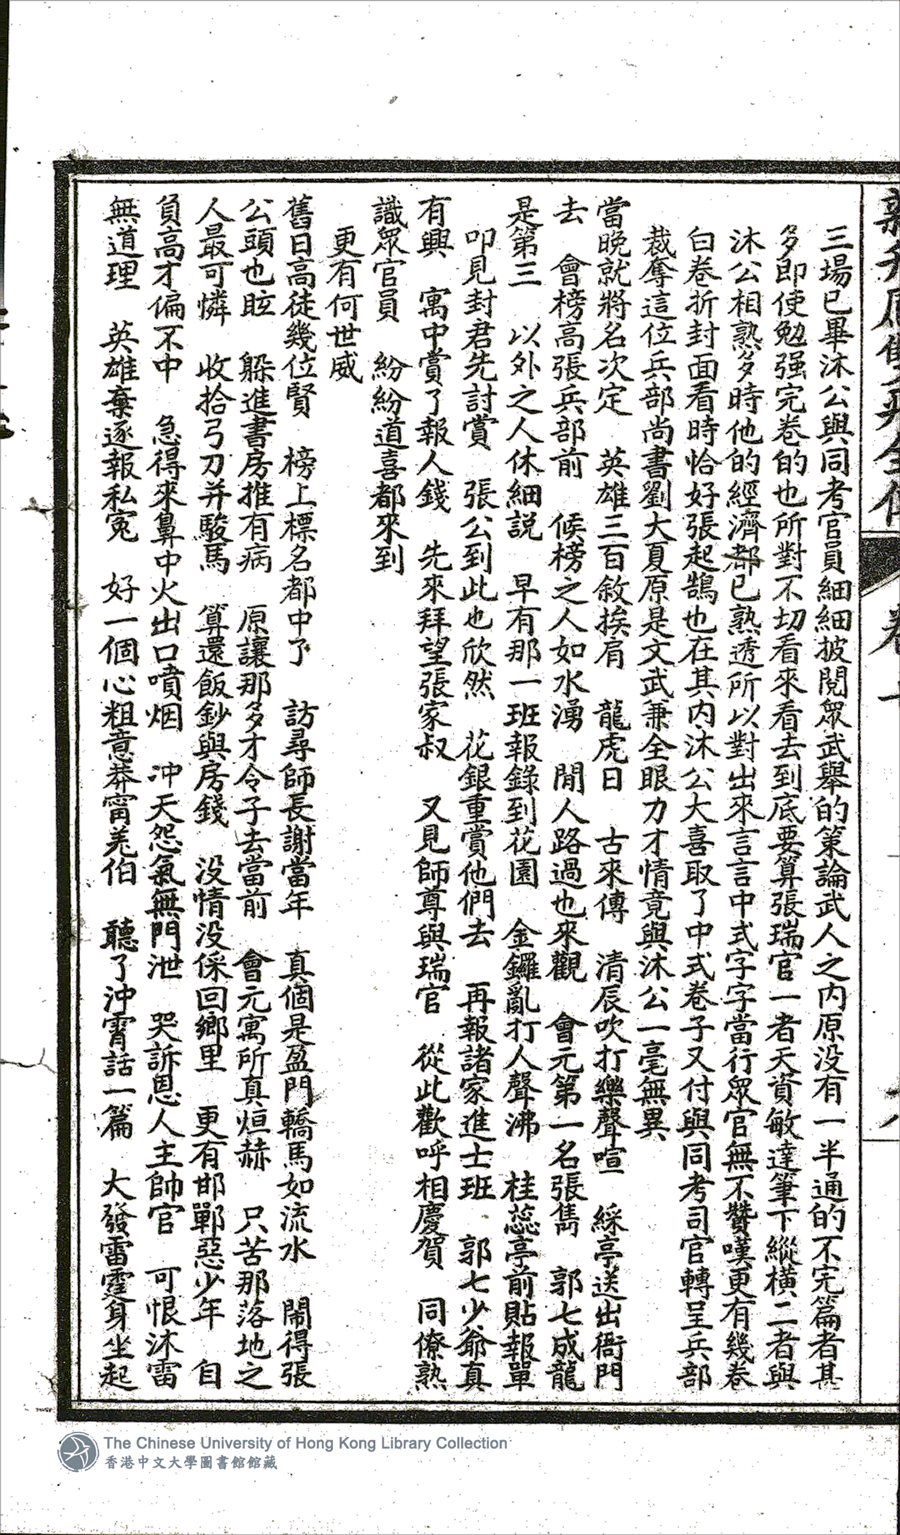 三場已畢沐公與同考官員細細披閱眾武舉的策論武人之內原沒有一半通的不完篇者甚
多即使勉强完卷的也所對不切看來看去到底要算張瑞官一者天資敏達筆下縱橫二者與
沐公相熟多時他的經濟都已熟透所以對出來言言中式字字當行眾官無不贊嘆更有幾卷
白卷折封面看時恰好張起鵠也在其內沐公大喜取了中式卷子又付與同考司官轉呈兵部
裁奪這位兵部尚書劉大夏原是文武兼全眼力才情竟與沐公一毫無異
當晚就將名次定　英雄三百敘挨肩　龍虎日　古來傳　清辰吹打樂聲喧　綵亭送出衙門
去　會榜高張兵部前　候榜之人如水湧　閒人路過也來觀　會元第一名張雋　郭七成龍
是第三　以外之人休細説　早有那一班報錄到花園　金鑼亂打人聲沸　桂蕊亭前貼報單
叩見封君先討賞　張公到此也欣然　花銀重賞他們去　再報諸家進士班　郭七少爺真
有興　寓中賞了報人錢　先來拜望張家叔　又見師尊與瑞官　從此歡呼相慶賀　同僚熟
識眾官員　紛紛道喜都來到
更有何世威
舊日高徒幾位賢　榜上標名都中了　訪尋師長謝當年　真個是盈門轎馬如流水　鬧得張
公頭也眩　躲進書房推有病　原讓那多才令子去當前　會元寓所真烜赫　只苦那落地之
人最可憐　收拾弓刀并駿馬　算還飯鈔與房錢　沒情沒倸回鄉里　更有邯鄲惡少年　自
負高才偏不中　急得來鼻中火出口噴烟　冲天怨氣無門泄　哭訴恩人主帥官　可恨沐雷
無道理　英雄棄逐報私寃　好一個心粗意莽甯羌伯　聽了沖霄話一篇　大發雷霆身坐起
The Chinese University of Hong Kong Library Collection
香港中文大學圖書館館藏